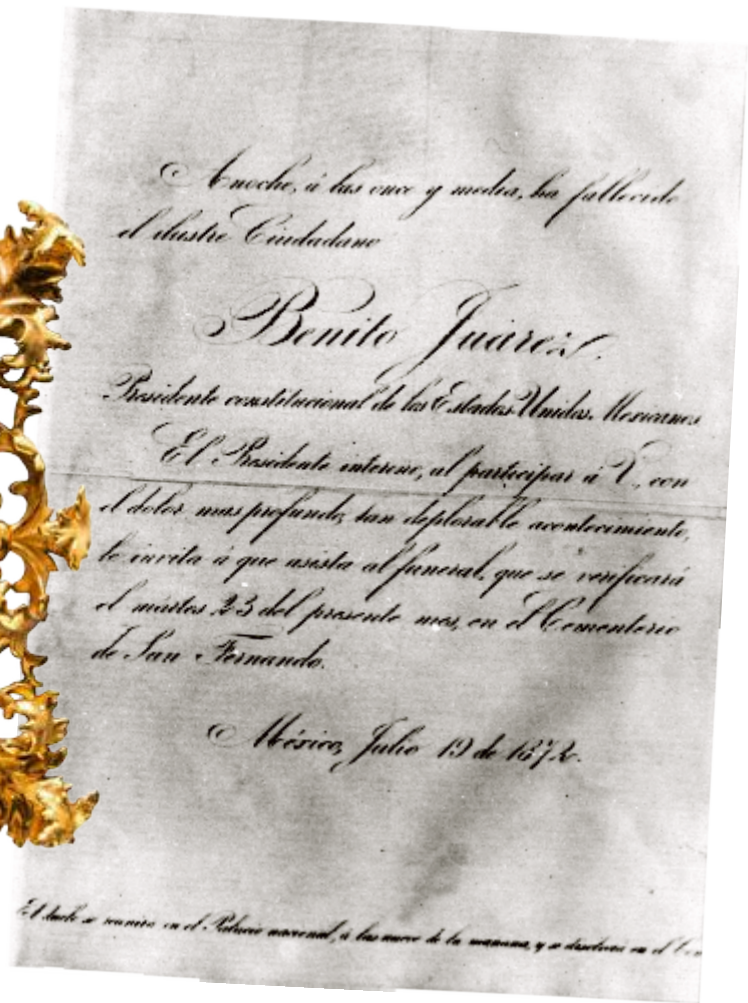 Anoche, á las once y media, ha fallecido
el ilustre Ciudadano
Benito Juárez.
Presidente constitucional de los Estados Unidos Mexicanos
El Presidente interino, al participar á V., con
el dolor mas profundo, tan deplorable acontecimiento,
le invita á que asista al funeral, que se verificará
el mártes 23 del presente mes, en el Cementerio
de San Fernando.
México, Julio 19 de 1872.
El duelo se reunirá en el Palacio nacional, á las nueve de la mañana, y se disolverá en el